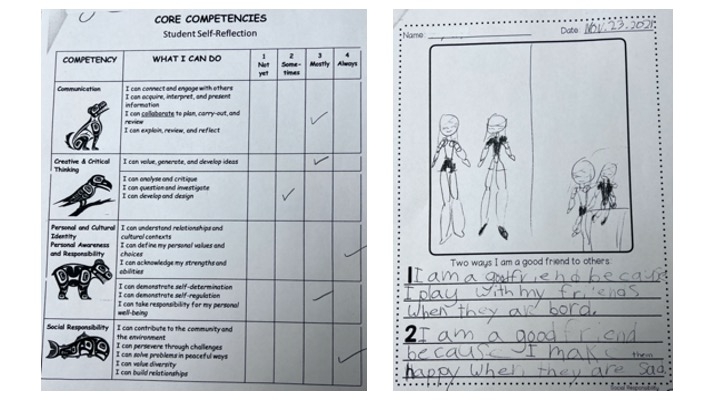 CORE COMPETENCIES
Student Self-Reflection
COMPETENCY
WHAT I CAN DO
1
Not
yet
2
Some-
times
3
Mostly
4
Always
Communication
I can connect and engage with others
I can acquire, interpret, and present
information
I can collaborate to plan, carry-out, and
review
I can explain, review, and reflect
Creative & Critical
Thinking
I can value, generate, and develop ideas
I can analyse and critique
I can question and investigate
I can develop and design
Personal and Cultural
Identity
Personal Awareness
and Responsibility
I can understand relationships and
cultural contexts
I can define my personal values and
choices
I can acknowledge my strengths and
abilities
I can demonstrate self-determination
I can demonstrate self-regulation
I can take responsibility for my personal
well-being
Social Responsibility
I can contribute to the community and
the environment
I can persevere through challenges
I can solve problems in peaceful ways
I can value diversity
I can build relationships
Name:
Date: Nov.23.2021
Two ways I am a good friend to others:
1 I am a goofriend because
I play with my friends
when they ar bord.
2 I am a good friend
because I mak them
happy when they are Sad
Social Responsibility